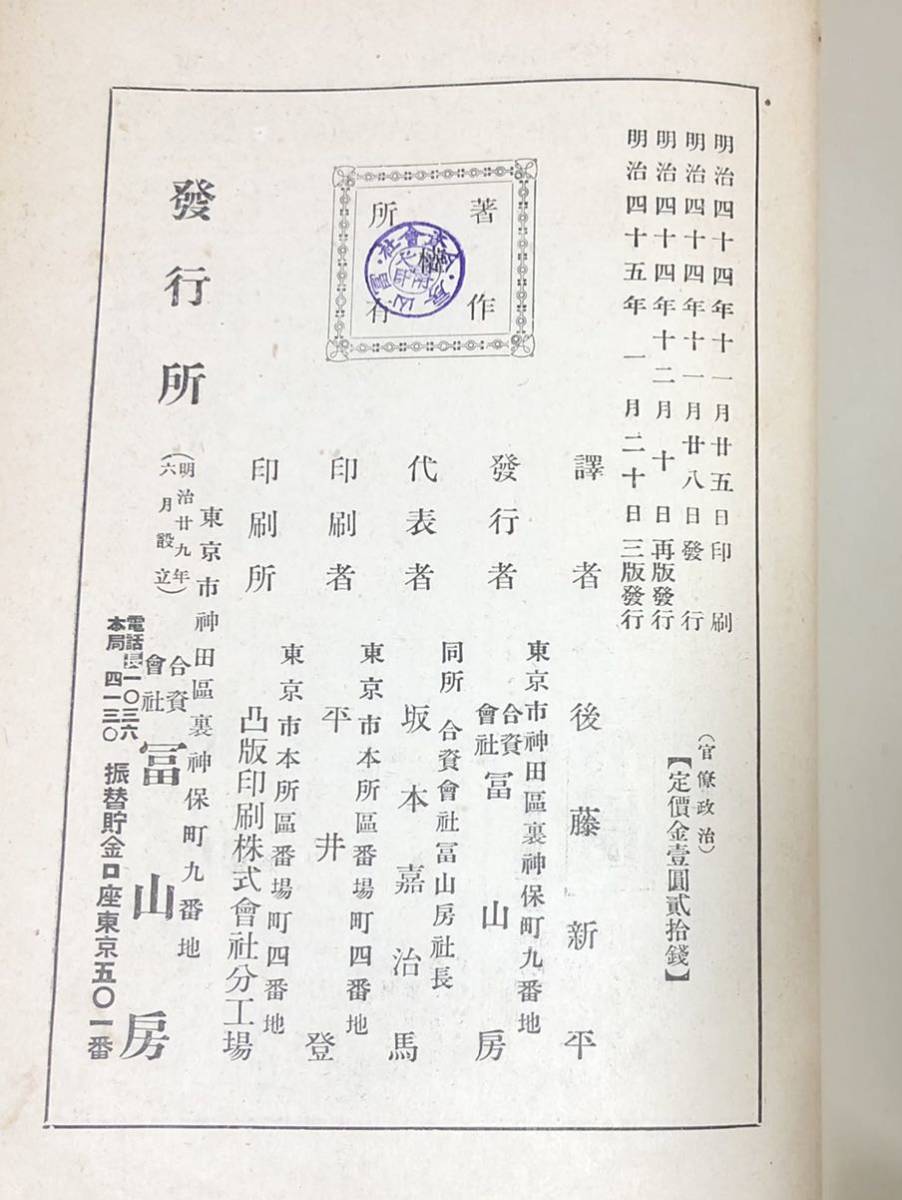 明治四十四年十一月廿五日印刷
明治四十四年十一月廿八日發行
明治四十四年十二月十日再版發行
明治四十五年一月二十日三版發行
(官僚政治)
【定價金壹圓貳拾錢】
著作
權
所有
譯者 後藤新平
東京市神田區裏神保町九番地
發行者 合資會社 冨山房
同所 合資會社冨山房社長
代表者 坂本嘉治馬
東京市本所區番場町四番地
印刷者 平井登
東京市本所區番場町四番地
印刷所 凸版印刷株式會社分工場
東京市神田區裏神保町九番地
發行所 (明治廿九年六月設立) 合資會社 冨山房
電話長一〇三六
本局四一三〇
振替貯金口座東京五〇一番